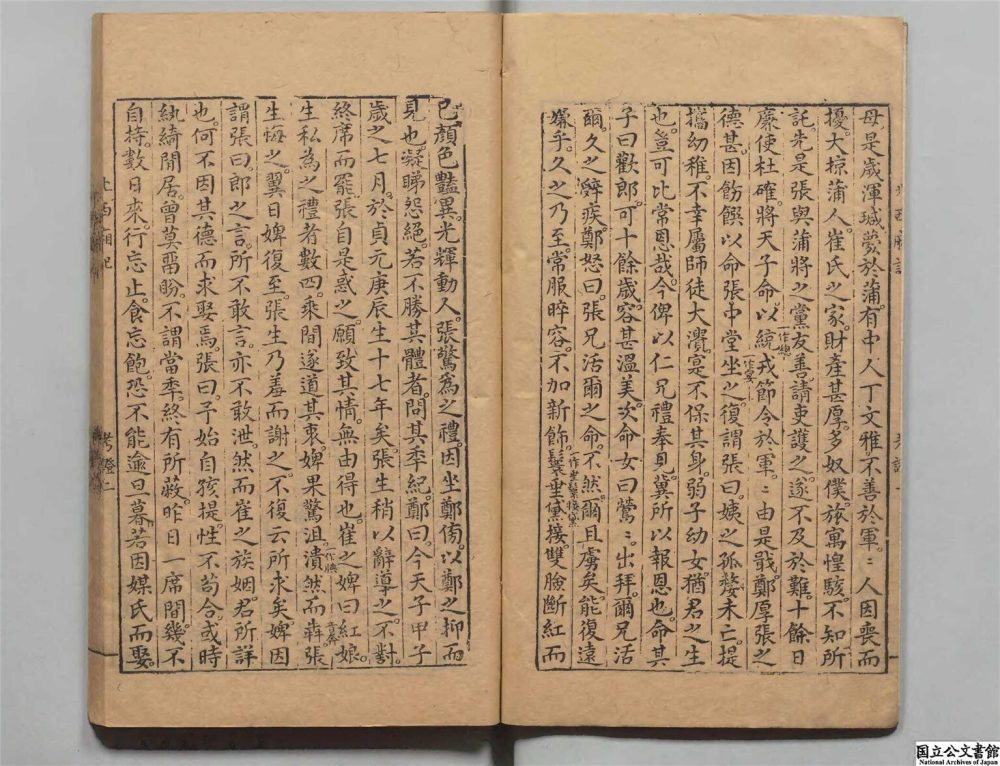 母是歲渾瑊薨於蒲。有中人丁文雅不善於軍。〻人因喪而
擾。大掠蒲人。崔氏之家。財產甚厚。多奴僕。旅寓惶駭。不知所
託。先是張與蒲將之黨友善。請吏護之。遂不及於難。十餘日
廉使杜確。將天子命。以統一作總戎節令於軍。〻由是戢。鄭厚張之
德甚。因飭饌以命張。中堂坐一作宴之。復謂張曰。姨之孤嫠未亡。提
攜幼稚。不幸屬師徒大潰。寔不保其身。弱子幼女。猶君之生
也。豈可比常恩哉。今俾以仁兄禮奉見。冀所以報恩也。命其
子曰歡郎。可十餘歲。容甚溫美。次命女曰鶯〻。出拜。爾兄活
爾。久之。辭疾。鄭怒曰。張兄活爾之命。不然。爾且虜矣。能復遠
嫌乎。久之乃至。常服晬容。不加新飾。一作垂鬟接黛鬟垂黛接。雙臉斷紅而
已。顏色豔異。光輝動人。張驚為之禮。因坐鄭傍。以鄭之抑而
見也。凝睇怨絕。若不勝其體者。問其年紀。鄭曰。今天子甲子
歲之七月。於貞元庚辰。生十七年矣。張生稍以辭導之。不對。
終席而罷。張自是惑之。願致其情。無由得也。崔之婢曰紅娘。
生私為之禮者數四。乘間遂道其衷。婢果驚沮。潰一作腆然而奔。張
生悔之。翼日婢復至。張生乃羞而謝之。不復云所求矣。婢因
謂張曰。郎之言。所不敢言。亦不敢泄。然而崔之族姻。君所詳
也。何不因其德而求娶焉。張曰。予始自孩提。性不苟合。或時
紈綺閒居。曾莫畱盼。不謂當年。終有所蔽。昨日一席間。幾不
自持。數日來。行忘止。食忘飽。恐不能逾旦暮。若因媒氏而娶。
北西廂記
考證二